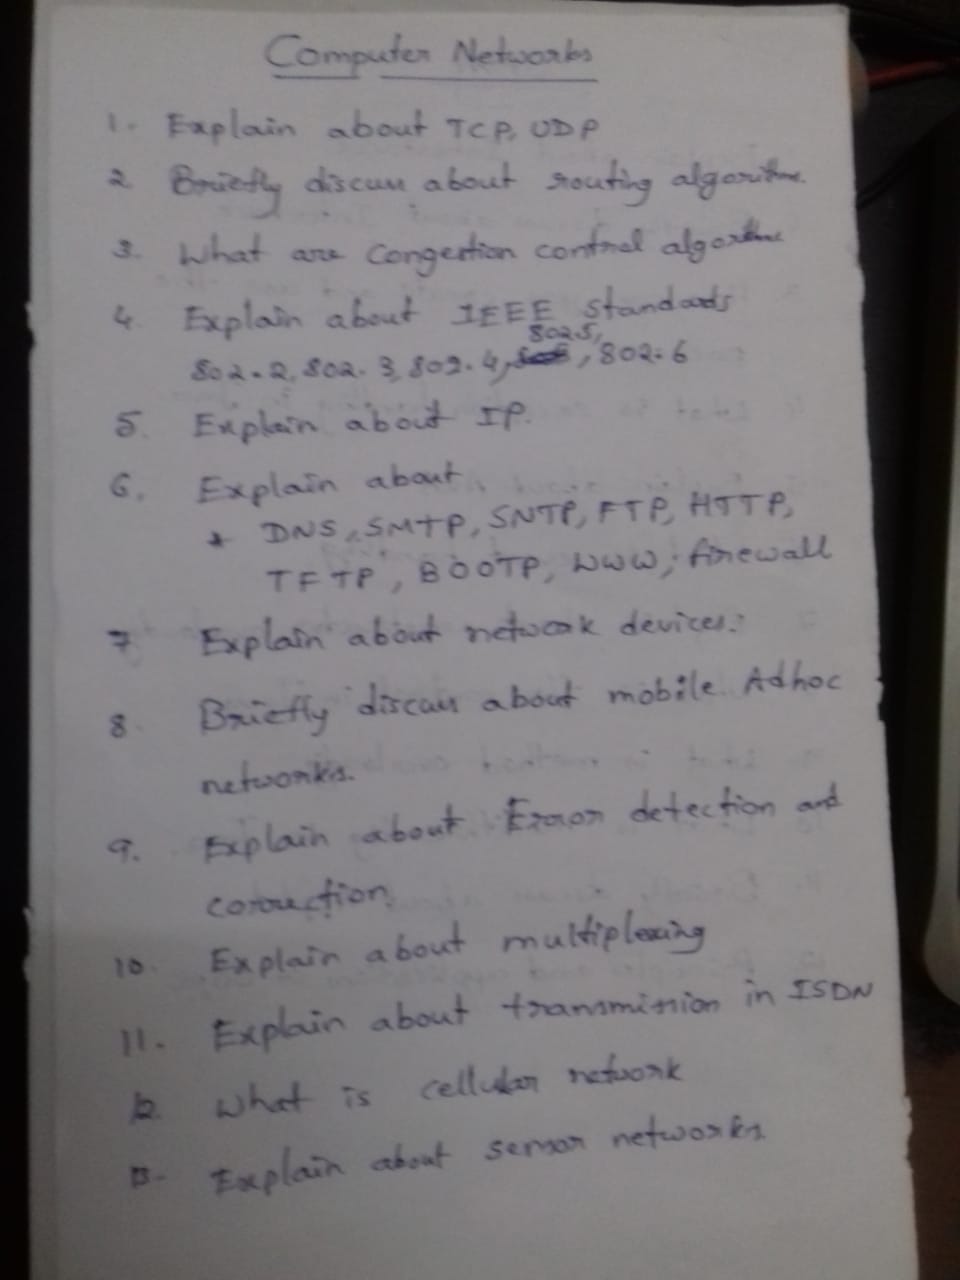 Computer Networks
1. Explain about TCP, UDP
2. Briefly discuss about routing algorithm.
3. What are Congestion control algorithm
4. Explain about IEEE standards
802.5,
802.2, 802.3, 802.4, , 802.6
5. Explain about IP.
6. Explain about
* DNS, SMTP, SNTP, FTP, HTTP,
TFTP, BOOTP, WWW, firewall
7 Explain about network devices.
8. Briefly discuss about mobile Adhoc
networks.
9. Explain about Error detection and
correction
10. Explain about multiplexing
11. Explain about transmission in ISDN
12. What is cellular network
13. Explain about sensor networks